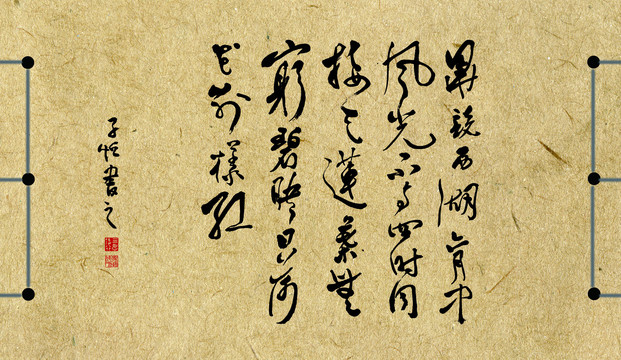 畢竟西湖六月中
风光不与四时同
接天蓮葉無
窮碧映日荷
花别樣红
子書之